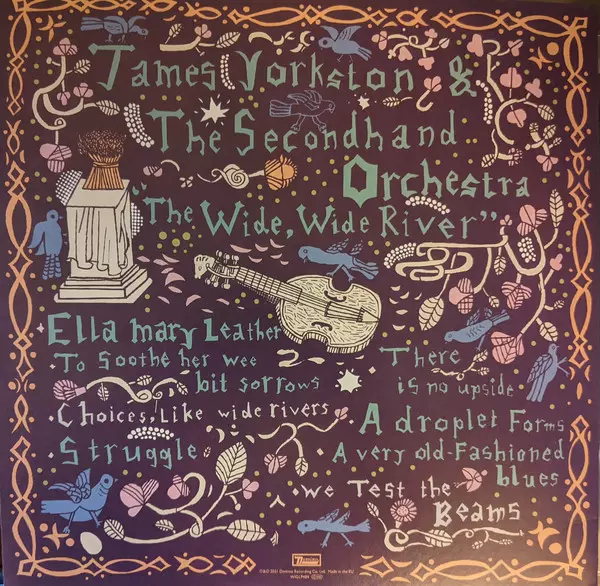 James Yorkston &
The Secondhand
Orchestra
"The Wide, Wide River"
Ella mary Leather
To Soothe her wee
bit sorrows
Choices, Like wide rivers
Struggle
There
is no upside
A droplet Forms
A very old-Fashioned
blues
we Test the
Beams
Domino